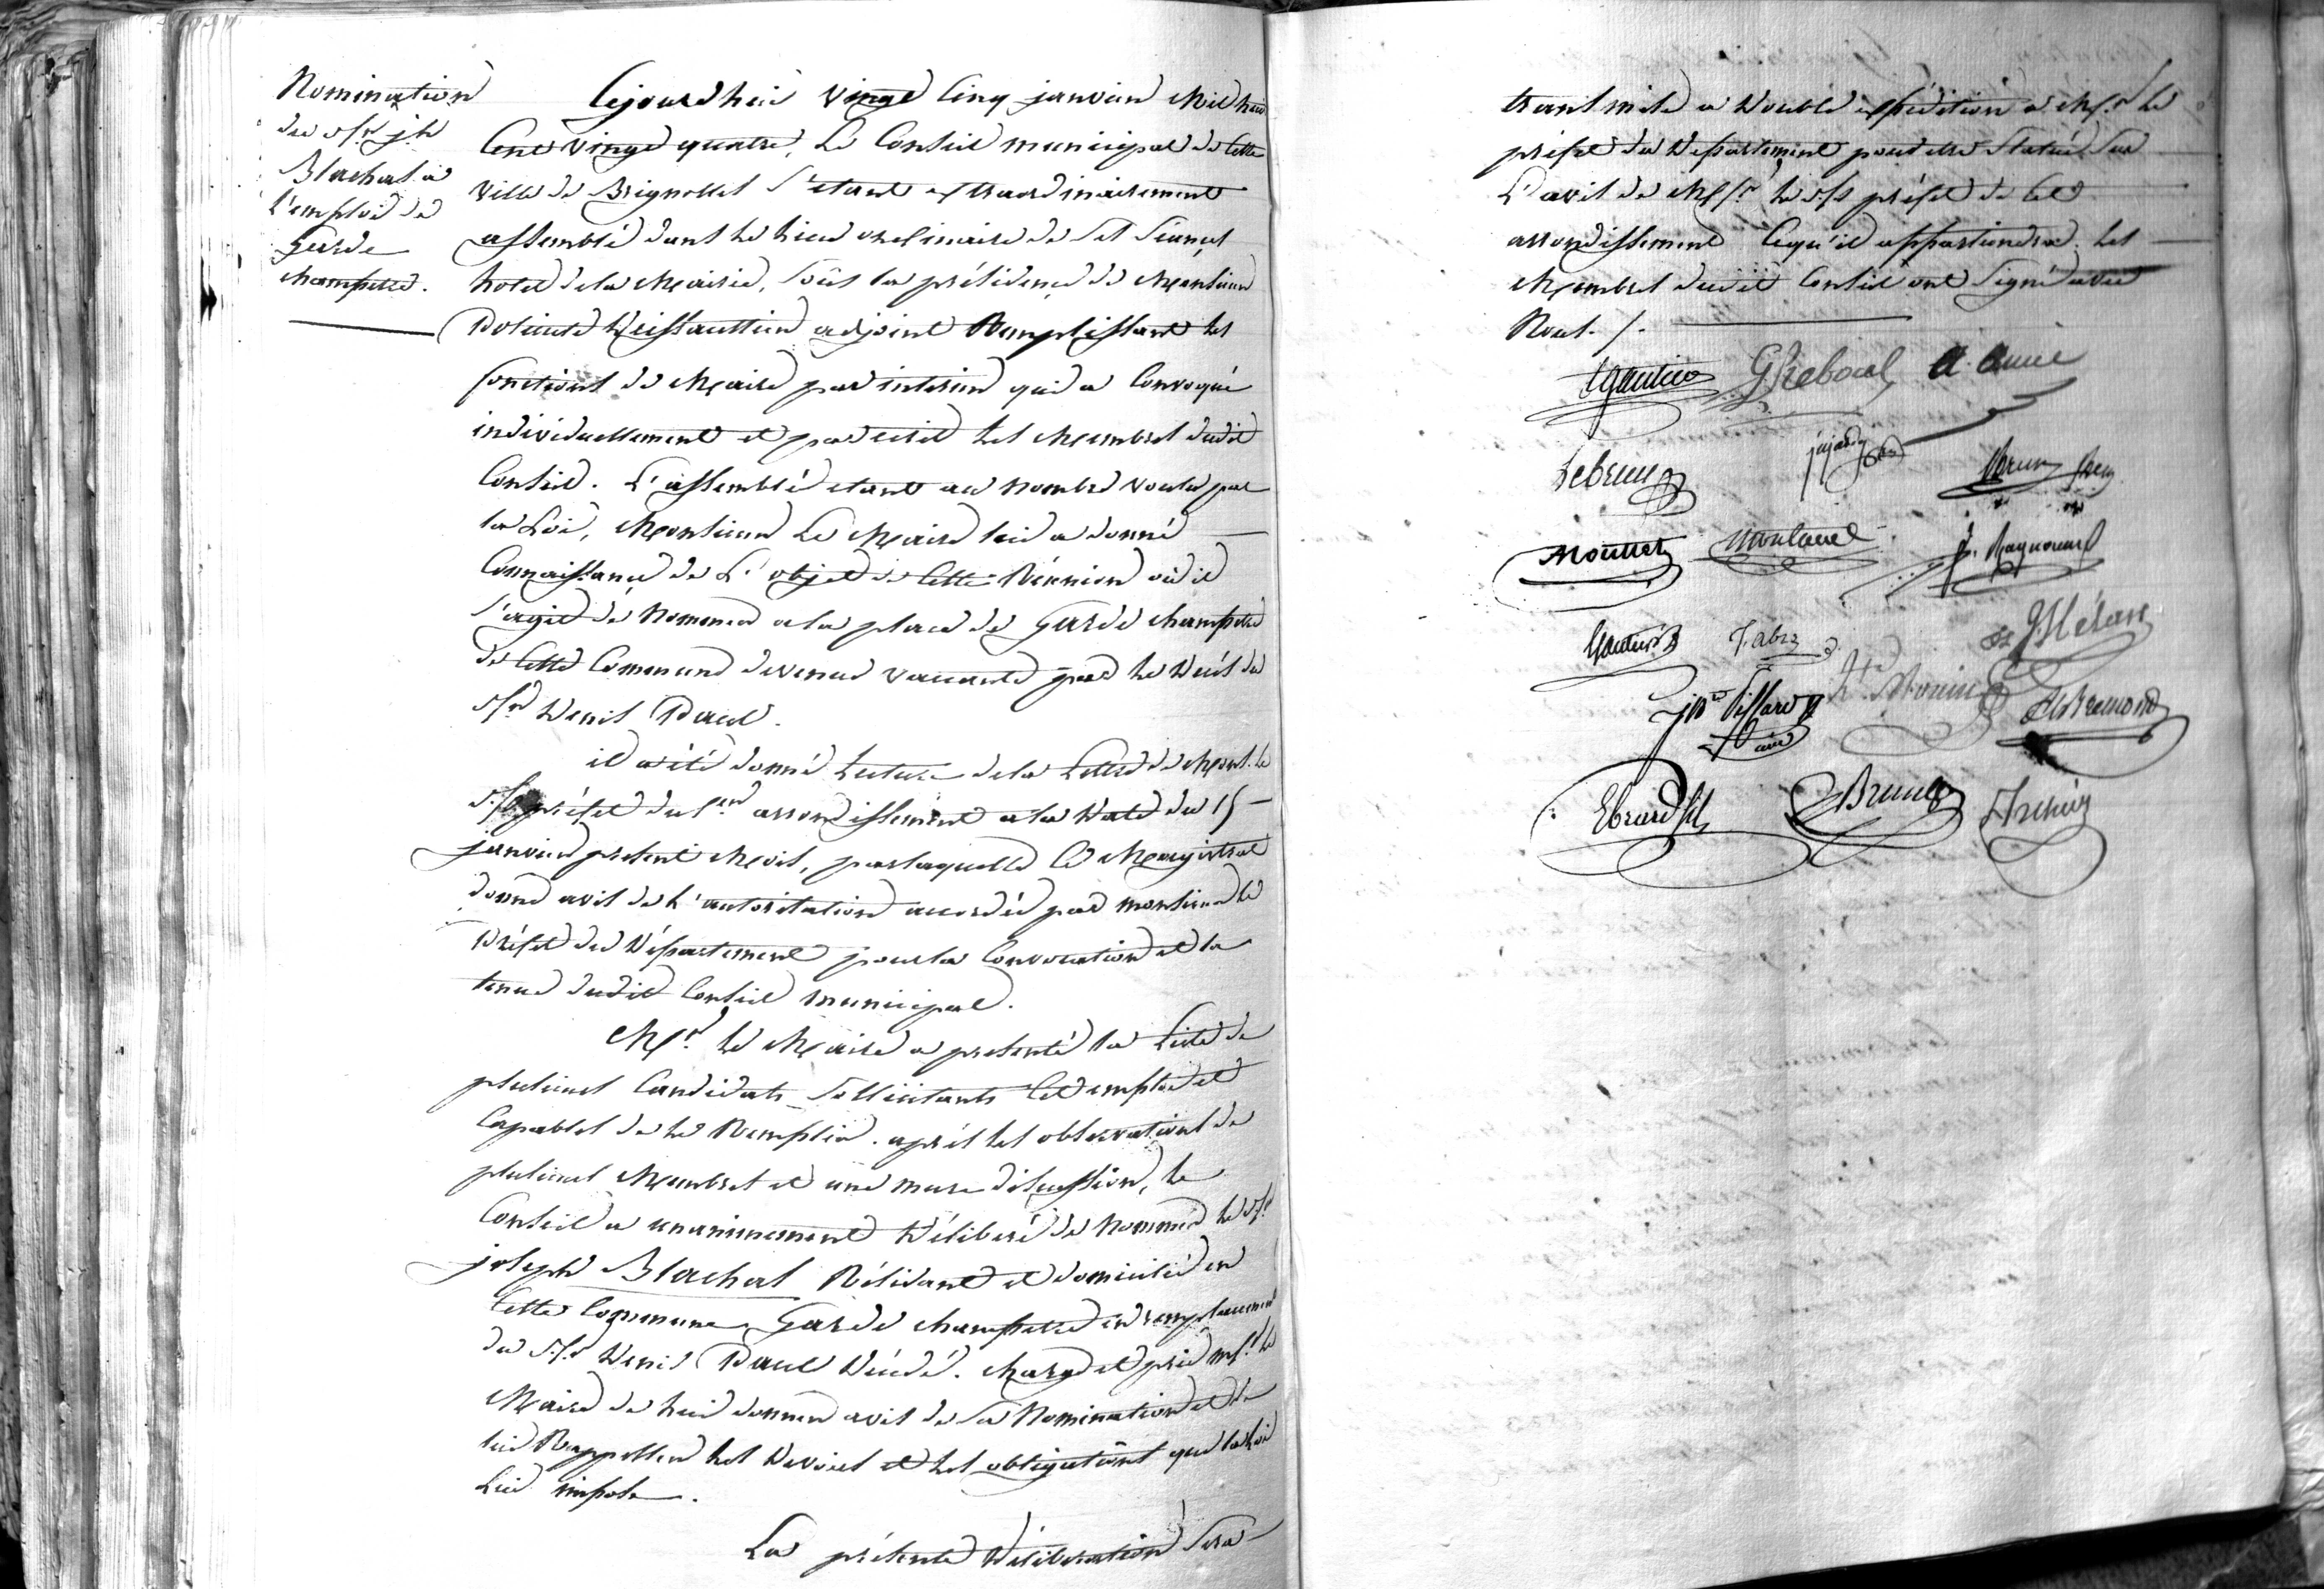 Nomination
du Sr. jh
Blachas a
l'emploi de
Garde
champetre.
Cejourd'hui vingt cinq janvier Mil huit
Cent vingt quatre, Le Conseil municipal de Cette
ville de Brignolles S'etant extraordinairement
assemblé dans le Lieu ordinaire de Ses Séances
hotel dela Mairie, Sous la présidence de Monsieur
adjoint Remplissant les
fonctions de Maire par interim qui a Convoqué
individuellement et par ecrit Les Membres dudit
Conseil. L'assemblée etant au Nombre voulu par
la Loi, Monsieur Le Maire lui a donné
Connaissance de L'objet de Cette Réunion où il
s'agit de Nommer a la place de Garde champetre
de Cette Commune devenue vacante par le Décès du
Sr. Denis Paul.
il a été donné Lecture dela Lettre de Mons. le
S. préfet du 1er arrondissement a la Date du 15
janvier présent Mois, par laquelle Ce Magistrat
donne avis de L'autorisation accordée par monsieur le
Préfet du Département pour la Convocation et la
tenue dudit Conseil municipal.
Mr. Le Maire a présenté la Liste de
plusieurs Candidats Sollicitants Cet emploi et
Capables de le Remplir. après les observations de
plusieurs Membres et une mure discussion, le
Conseil a unanimement Délibéré de Nommer le Sr.
joseph Blachas Résidant et domicilié en
Cette Commune Garde champetre en remplacement
du Sr. Denis Paul Décédé. charge et prie Mr. le
Maire de Lui donner avis de Sa Nomination et de
lui Rappeller les Devoirs et les obligations que la Loi
Lui impose.
La présente Délibération Sera
transmise a Double expédition a Mr. le
préfet du Département pour etre Statué Sur
L'avis de Mr. le S. préfet de Cet
arrondissement Ce qu'il appartiendra. Les
Membres dudit Conseil ont Signé avec
Nous./.
Gautier G Reboul
Lebrun
Moutter
J. Raynouard
Gautier Fabre
Jh Pissard
Bremond
Ebrard fils Brunet